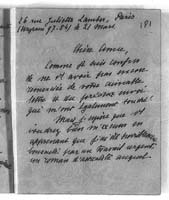 26 rue Juliette Lamber, Paris
(Wagram 97.04) le 21 Mars
181
Chère Amie,
Comme je suis confus
de ne vous avoir pas encore
remerciée de votre aimable
lettre et du précieux envoi
qui m'ont également touché!
Mais j'espère que vous
voudrez bien m'excuser en
apprenant que j'ai été
par un travail urgent,
un roman